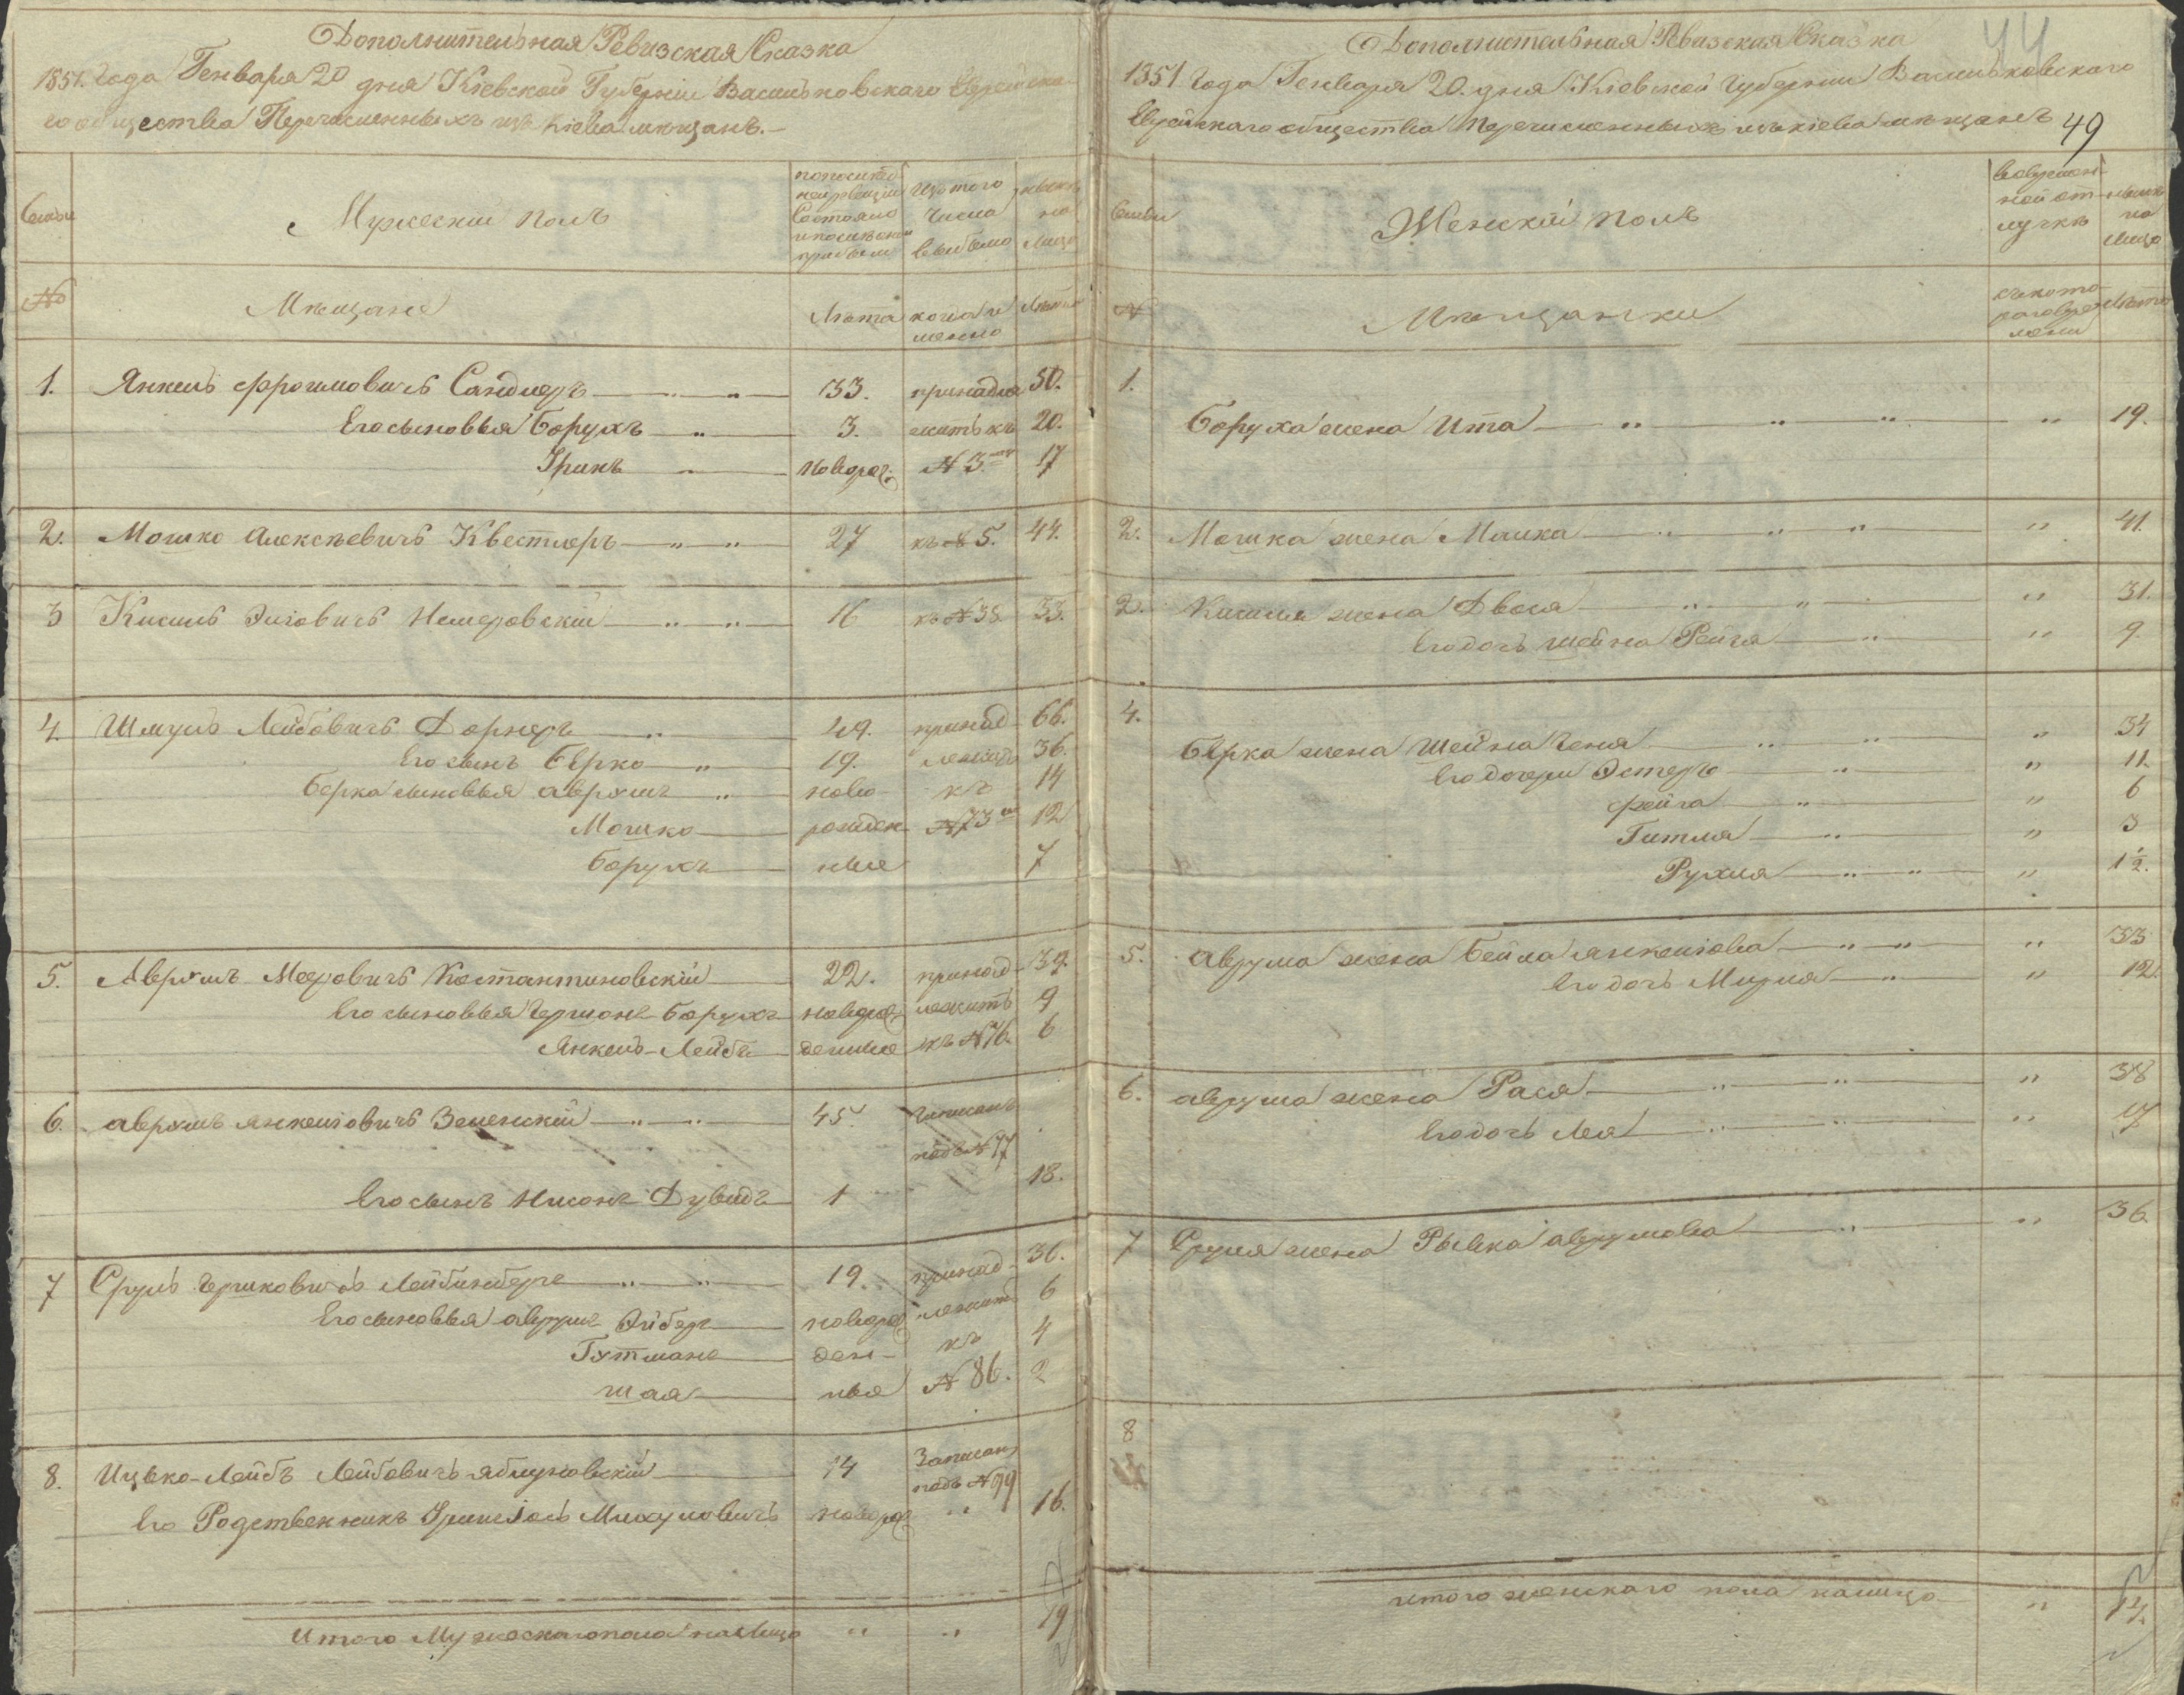 Дополнительная Ревизская Сказка
1851. Года Генваря 20 дня Кіевской Губерніи Васильковскаго Еврейска-
го общества Перечисленныхъ изъ Кіева мещанъ.-
Семьи
Мужескій полъ
по последней ревизіи Состояло и после оной прибыло
Изтого Числа выбыло
ныне на Лицо
№
Мещане
Лета
когда именно
Лета
1. Янкель Фроимовичъ Сандлеръ 33. принадле 50.
Его сыновья Борухъ 3. житъ къ 20.
Сруль новорож. № 3. 17
2. Мошко Алексеевичъ Квестлеръ 27 къ № 5. 44.
3 Кисиль Эліовичъ Немеровскій 16 къ № 38. 33.
4. Шмуль Лейбовичъ Дорнеръ 49. принад- 66.
Его сынъ Берко 19. лежитъ 36.
Берка сыновья Аврумъ ново- къ 14
Мошко рожден- № 73 12
Борухъ ные 7
5. Аврумъ Меровичъ Костантиновскій 22. принад- 39.
Его сыновья Гершонъ Борухъ новорож лежитъ 9
Янкель-Лейбъ денные къ № 76. 6
6. Аврумъ Янкеліовичъ Зеленскій 45. Записанъ
подъ № 77
Его сынъ Нисонъ Дувидъ 1 18.
7 Сруль Гершковичъ Лейбинберге 19. принад- 36.
Его сыновья Аврумъ Эйберъ новорож лежитъ 6
Гутманъ ден- къ 4
Шая ные № 86. 2
8. Ицько-Лейбъ Лейбовичъ Яблуновскій 14 Записанъ
подъ № 99
Его Родственникъ Михуловичъ новорож 16.
Итого Мужескаго пола налицо 19
44
Дополнительная Ревизская Сказка
1851 Года Генваря 20. дня Кіевской Губерніи Васильковскаго
Еврейскаго общества Перечисленныхъ изъ Кіева мещанъ 49
Семьи
Женскій полъ
Вовремен-
ной от-
лучке
ныне
на
Лицо
№
Мещанки
съ кото-
раго вре-
мени
Лета
1.
Боруха жена Ита " 19.
2. Мошка жена Малка " 41.
2. Кисиля жена Двося " 31.
Его дочь Шейна Рейзя " 9.
4.
Берка жена Шейна Геня " 34
Его дочери Эстеръ " 11.
Фейга " 6
Гитля " 3
Рухля " 1½.
5. Аврума жена Бейла Янкеліова " 33
Его дочь Мирля " 12.
6. Аврума жена Рася " 38
Его дочь Лея " 17
7 Сруля жена Рывка Аврумова " 36.
8
итого женскаго пола налицо " 17.